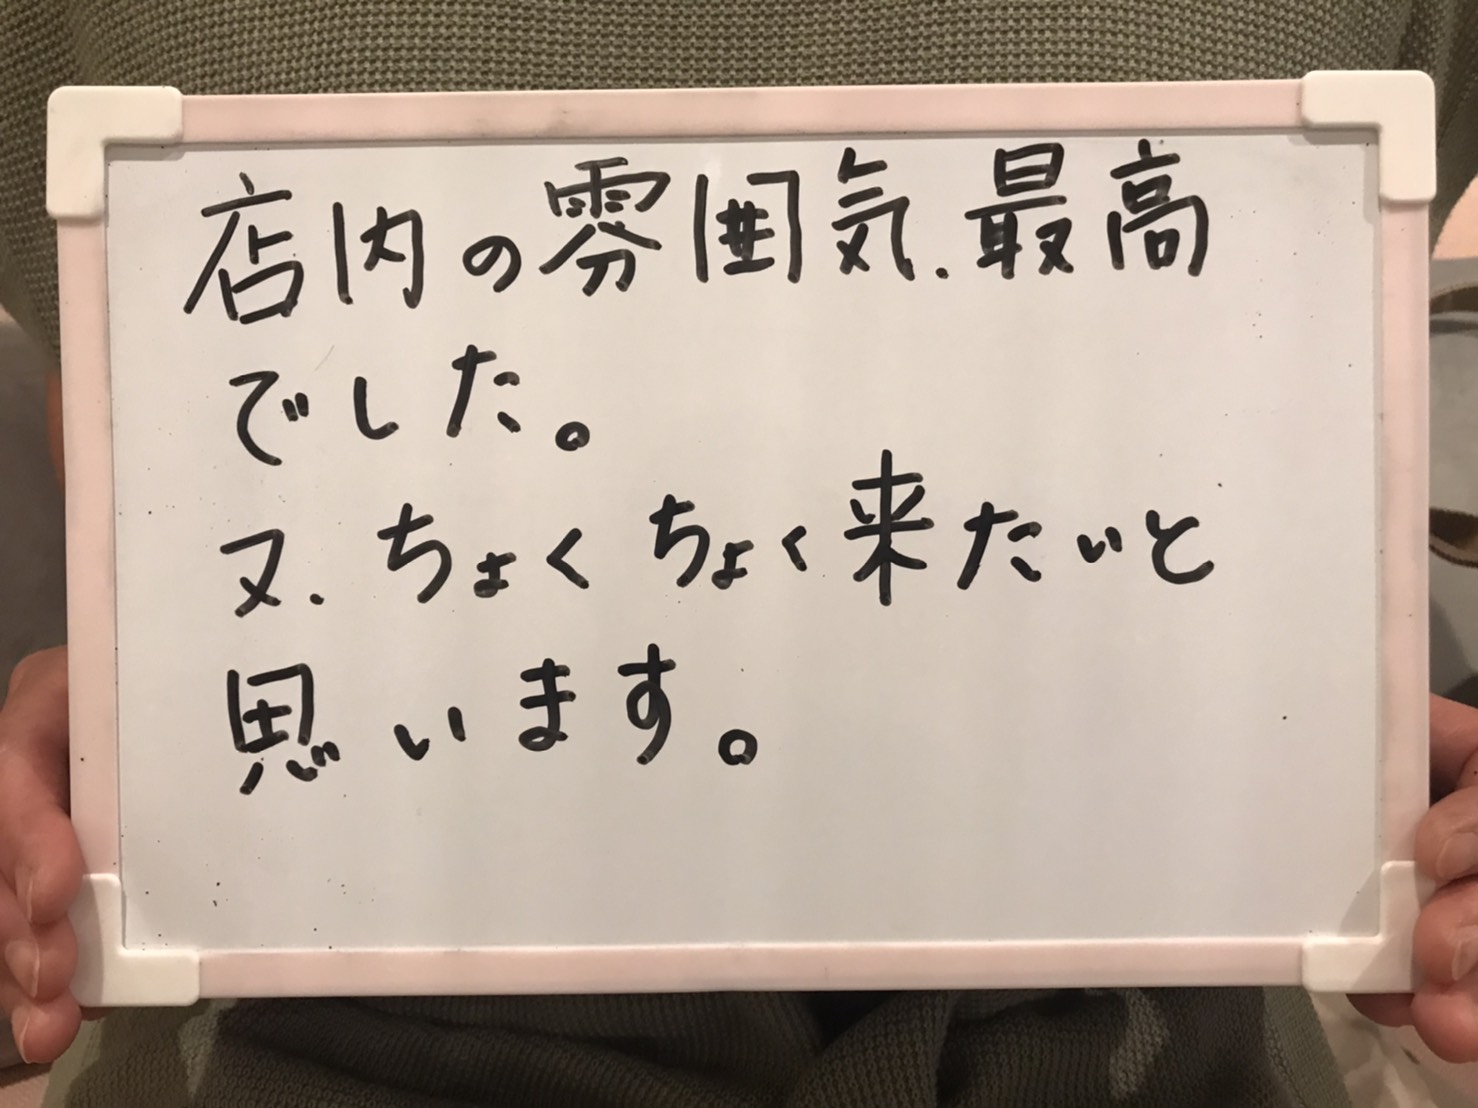 店内の雰囲気、最高
でした。
又、ちょくちょく来たいと
思います。